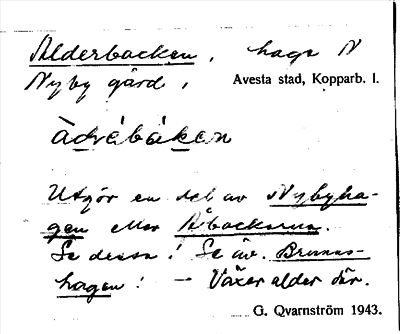 Alderbacken, hage N
Nyby gård, Avesta stad, Kopparb. l.
àdrèbáken
Utgör en del av Nybyha-
gen eller Åbackarna.
Se dessa! Se äv. Brunns-
hagen! – Växer alder där.
G. Qvarnström 1943.